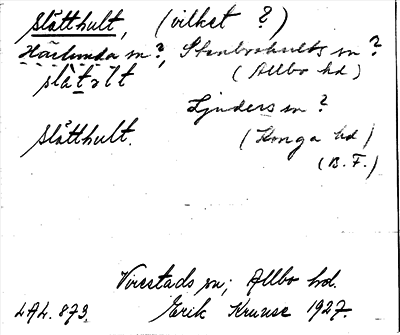 Slåtthult, (vilket ?)
Härlunda sn?, Stenbrohults sn ?
slàtəlt (Allbo hd)
Ljuders sn ?
Slåtthult. (Konga hd)
(B.F.)
Virestads sn; Allbo hd.
LAL. 873. Erik Kruuse 1927.